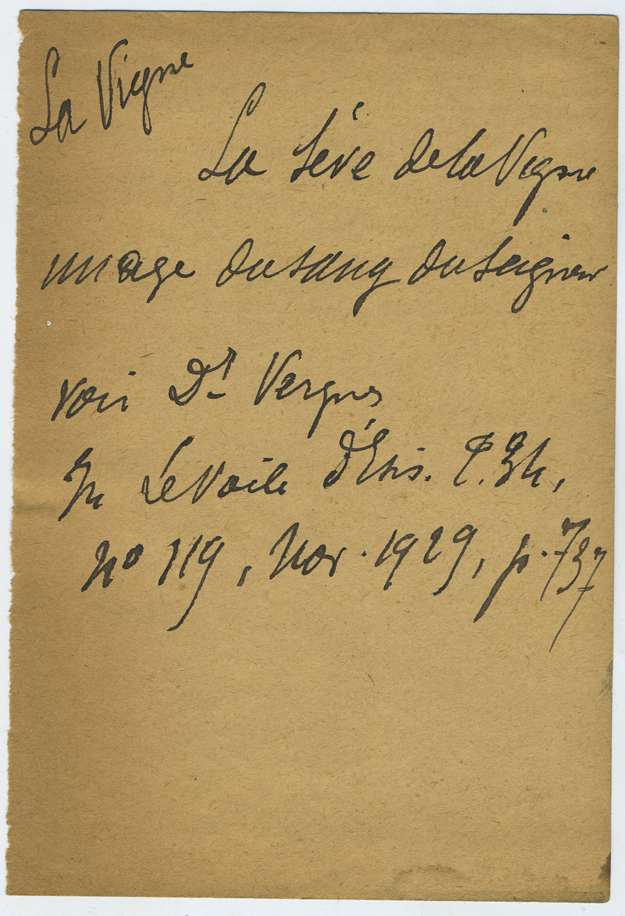 La Vigne
La Sève de la Vigne
image du sang du Seigneur
voir Dr Vergnes
In Le Voile d'Isis.
No 119, Nov. 1929, p. 737